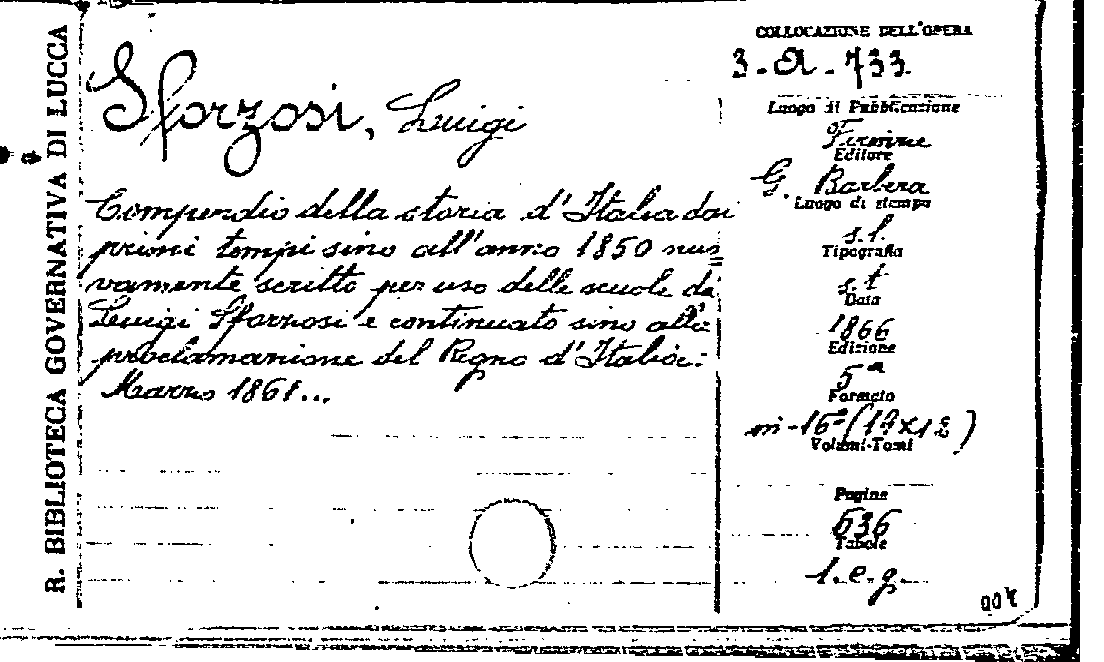 R. BIBLIOTECA GOVERNATIVA DI LUCCA
Sforzosi, Luigi
Compendio della storia d'Italia dai
primi tempi sino all'anno 1850 nuo=
vamente scritto per uso delle scuole da
Luigi Sforzosi e continuato sino alla
proclamazione del Regno d'Italia:
Marzo 1861...
COLLOCAZIONE DELL'OPERA
3-A-733
Luogo di Pubblicazione
Firenze
Editore
G. Barbera
Luogo di stampa
s.l.
Tipografia
s.t
Data
1866
Edizione
5ª
Formato
in-16°
Volumi-Tomi
Pagine
636
Tavole